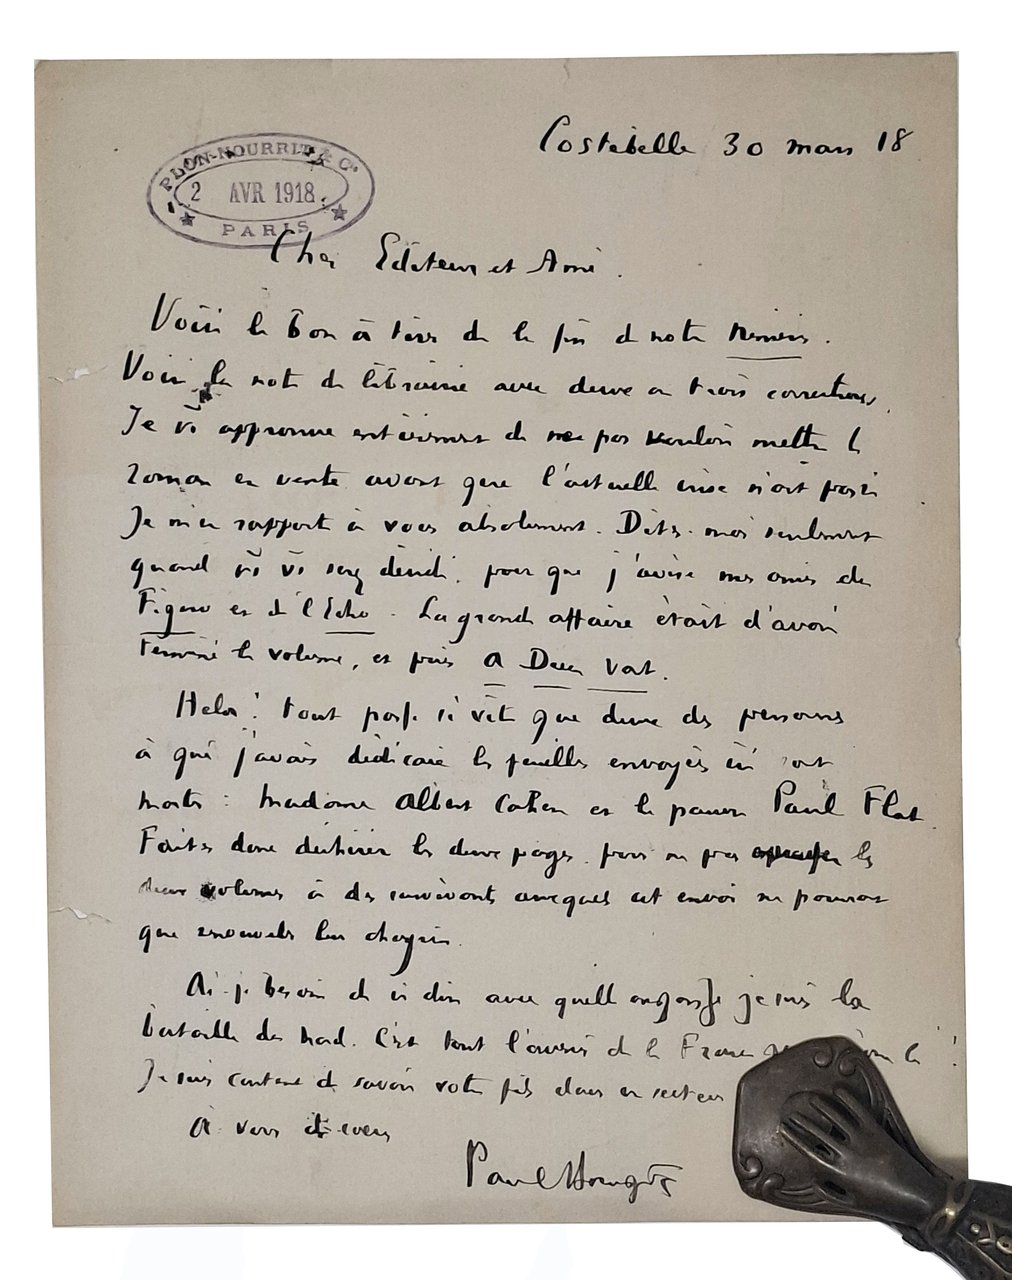 PLON-NOURRIT & Cie
2 AVR 1918
PARIS
Costebelle 30 mars 18
Cher Editeur et Ami.
Voici le bon à tirer de la fin de notre Némésis.
Voici la note de librairie avec deux ou trois corrections.
Je vs approuve entièrement de ne pas vouloir mettre le
roman en vente avant que l'actuelle crise n'ait passé
Je m'en rapporte à vous absolument. Dites-moi seulement
quand vs vs serez décidé, pour que j'avise mes amis du
Figaro et de l'Echo. La grande affaire était d'avoir
terminé le volume, et puis A Dieu Vat.
Helas! tout passe si vite que deux des personnes
à qui j'avais dédicacé les feuilles envoyées ici sont
mortes: Madame Albert Cahen et le pauvre Paul Flat.
Faites donc déchirer les deux pages pour ne pas les
deux volumes à des survivants auxquels cet envoi ne pourrait
que renouveler leur chagrin.
Ai-je besoin de vs dire avec quelle angoisse je suis la
bataille du Nord. C'est tout l'avenir de la France
Je suis content de savoir votre fils dans un secteur
A vous de coeur
Paul Bourget